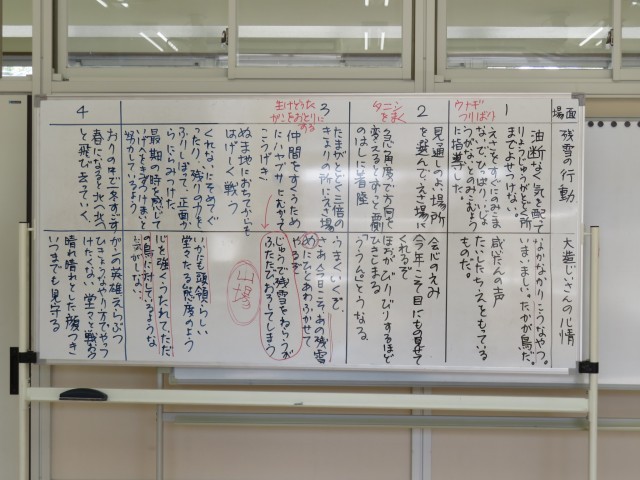 場面
残雪の行動
大造じいさんの心情
1
ウナギ
つりばり
油断なく気を配って
りょうじゅうがとどく所
までよせつけない。
えさをすぐにのみこま
ないで、ひっぱり、いじょう
がないとのみこむよう
に指導した。
なかなかりこうなやつ。
いまいましい。たかが鳥だ。
感たんの声
たいしたちえをもっている
ものだ。
2
タニシ
をまく
見通しのよい場所
を選んで、えさ場に
急角度で方向を
変えるとずっと西側
のはしに着陸
会心のえみ
今年こそ目にもの見せて
くれるぞ
ほおがびりびりするほど
ひきしまる
ううんとうなる
3
生けどった
がんをおとりに
する
たまがとどく三倍の
きょりの所にえさ場
仲間をすくうため
にハヤブサにむかって
こうげき
ぬま地におちてからも
はげしく戦う
くれないにそめてぐ
ったり、残りの力を
ふりしぼって、正面か
らにらみつけた
最期の時を感じて
いげんをきずつけまいと
努力しているよう
うまくいくぞ。
さあ今日こそ、あの残雪
めにひとあわふかせて
やるぞ
じゅうで残雪をねらうが
ふたたびおろしてしまう
山場
いかにも頭領らしい
堂々たる態度のよう
心を強くうたれて、ただ
の鳥に対しているような
気がしない。
4
おりの中で冬をこす
春になると北へ北へ
と飛び去っていく。
がんの英雄、えらぶつ
ひきょうなやり方でやっつ
けたくない 堂々と戦おう
晴れ晴れとした顔つき
いつまでも見守る